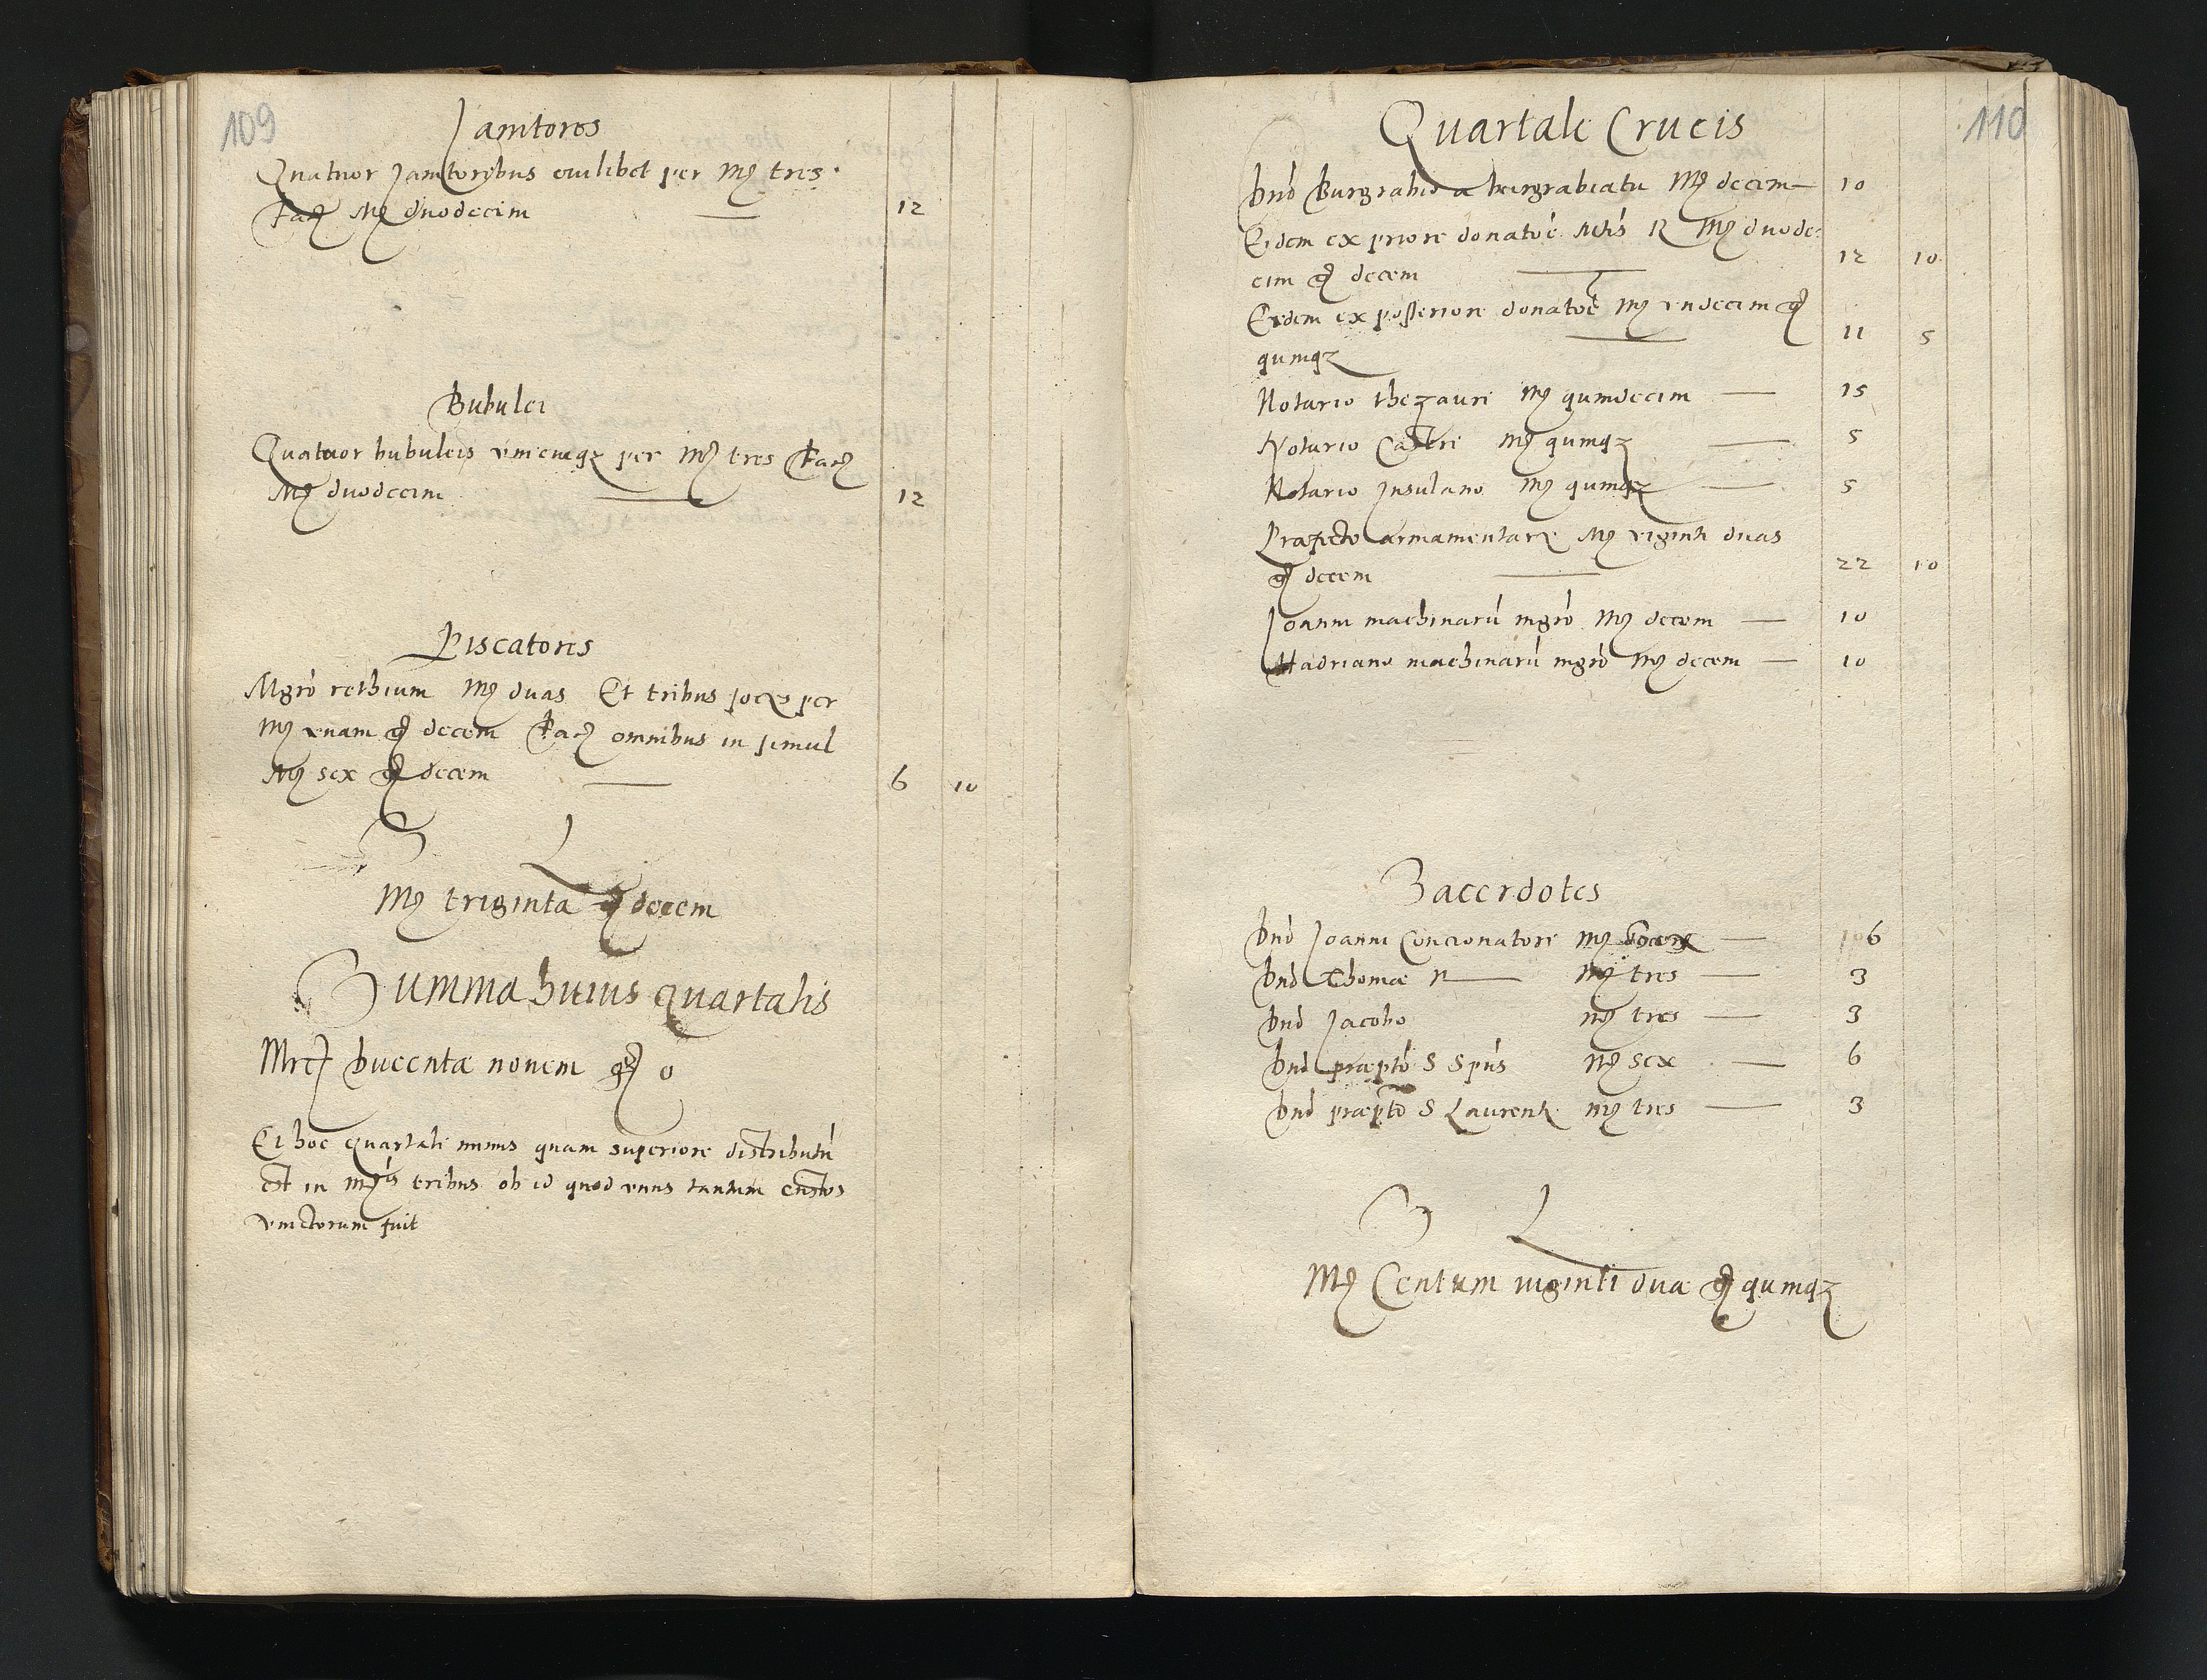 109
Janitores
Quatuor Janitoribus cuilibet per Mr tres
Fac Mr duodecim 12
Bubulci
Quatuor bubulcis unicuiqz per Mr tres Fac
Mr duodecim 12
Piscatores
Mgro rethium Mr duas Et tribus socys per
Mr unam gr decem Fac omnibus in simul
Mr sex gr decem 6 10
S L
Mr triginta gr decem
Summa huius quartalis
Mrc ducentæ novem gr 0
Et hoc quartali minus quam superiore distributu
est in mris tribus ob id quod unus tantum custos
vinctorum fuit
110
Quartale Crucis
Dno Burgrabio a burgrabiatu Mr decem 10
Eidem ex priore donatoe Mtis R Mr duode:
cim gr decem 12 10
Eidem ex posteriore donatoe Mr undecim gr
quinqz 11 5
Notario thezauri Mr quindecim 15
Notario Castri Mr quinqz 5
Notario Insulano Mr quinqz 5
Præfecto armamentary Mr viginti duas
gr decem 22 10
Joanni machinaru mgro Mr decem 10
Hadriano machinaru mgro Mr decem 10
Sacerdotes
Dno Joanni Concionatori Mr 6
Dno Thomæ n Mr tres 3
Dno Jacobo Mr tres 3
Dno præpto S Spus Mr sex 6
Dno præpto S Laurenty Mr tres 3
S L
Mr Centum viginti duæ gr quinqz